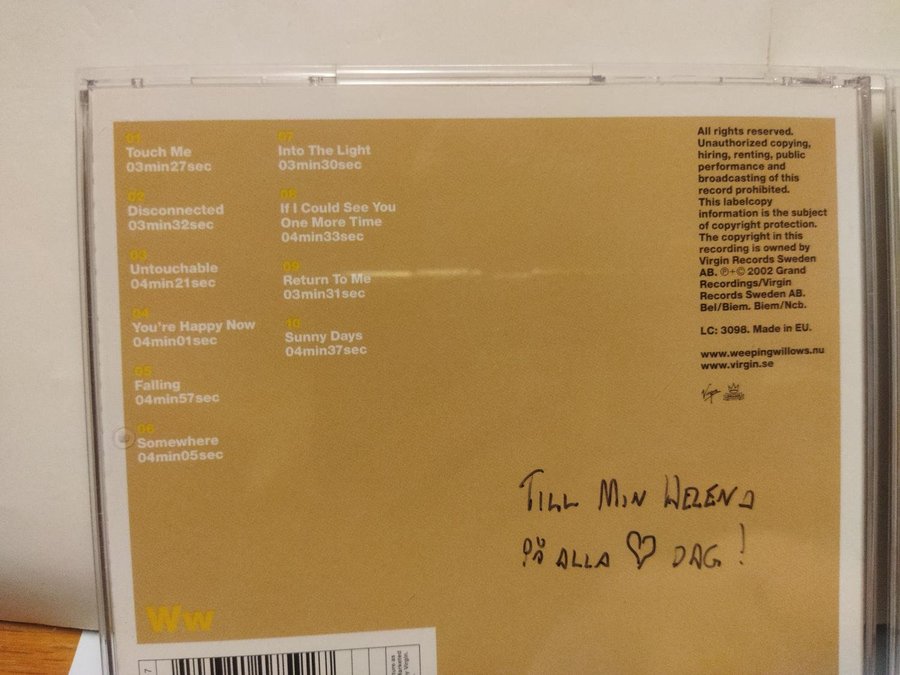 01
Touch Me
03min27sec
02
Disconnected
03min32sec
03
Untouchable
04min21sec
04
You're Happy Now
04min01sec
05
Falling
04min57sec
06
Somewhere
04min05sec
07
Into The Light
03min30sec
08
If I Could See You
One More Time
04min33sec
09
Return To Me
03min31sec
10
Sunny Days
04min37sec
All rights reserved.
Unauthorized copying,
hiring, renting, public
performance and
broadcasting of this
record prohibited.
This labelcopy
information is the subject
of copyright protection.
The copyright in this
recording is owned by
Virgin Records Sweden
AB. ℗+© 2002 Grand
Recordings/Virgin
Records Sweden AB.
Bel/Biem. Biem/Ncb.
LC: 3098. Made in EU.
www.weepingwillows.nu
www.virgin.se
Virgin
TILL MIN HELENA
PÅ ALLA ♡ DAG!
Ww
7